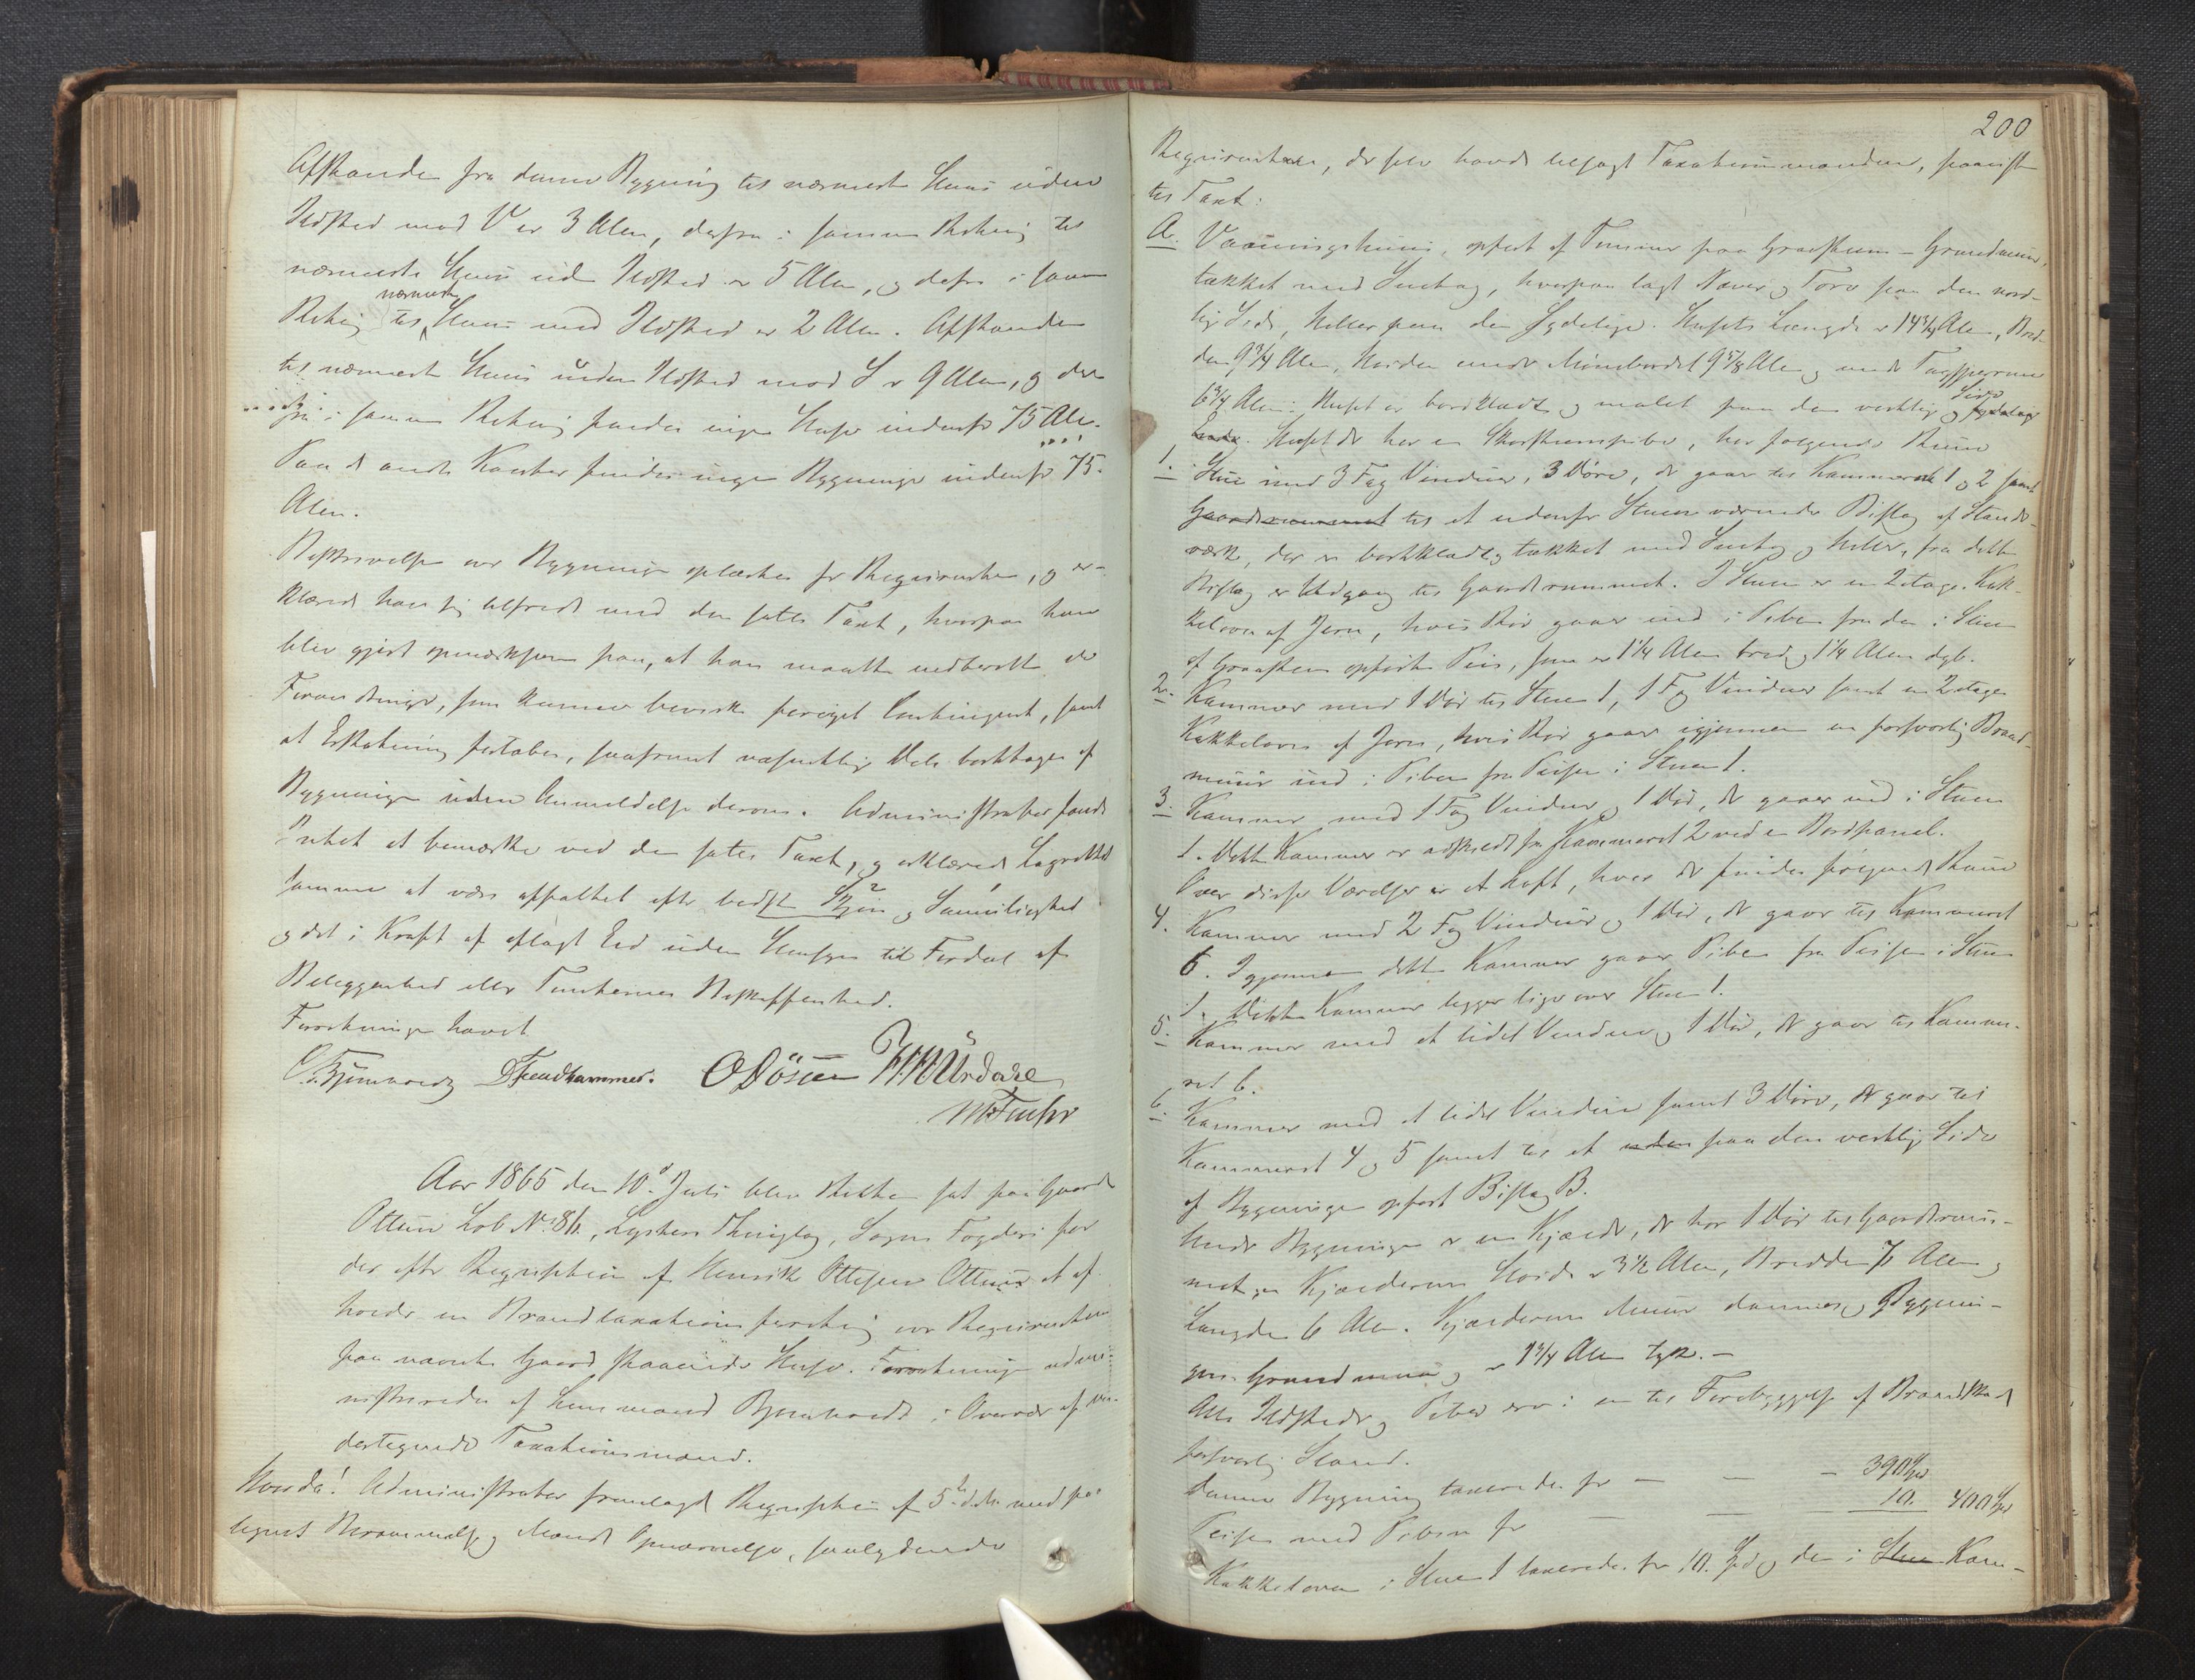 Afstanden fra denne Bygning til nærmeste Huus uden
Ildsted mod V er 3 Alen, derfra i samme Retning til
nærmeste Huus uden Ildsted er 5 Alen, og derfra i samme
Retning til nærmeste Huus med Ildsted er 2 Alen. Afstanden
til nærmeste Huus uden Ildsted mod S er 9 Alen, og der
fra i samme Retning findes ingen Huse indenfor 75 Alen.
Paa de andre Kanter findes ingen Bygninger indenfor 75
Alen.
Beskrivelsen over Bygningen oplæstes for Reqvirenten, og er-
klærede han sig tilfreds med den satte Taxt, hvorpaa han
blev gjort opmærksom paa, at han maatte indberette de
Forandringer, som kunne bevirke forøget Contingent, samt
at Erstatning fortabes, saafremt væsentlige Dele borttages af
Bygningen uden Anmeldelse derom. Administrator fandt
Intet at bemærke ved den satte Taxt, og erklærede Lagrettet
samme at være affattet efter bedste Skjøn og Samvittighed
og det i Kraft af aflagt Eed uden Hensyn til Fordeel af
Beliggenhed eller Tomternes Beskaffenhed.
Forretningen hævet
O Döscen H.H. Urdahl
Aar 1865 den 10d Juli blev Retten sat paa Gaarden
Ottum Løb No 86, Lysters Thinglag, Sogns Fogderi for
der efter Reqvisition af Henrik Ottesen Ottum at af-
holde en Brandtaxationsforretning over Reqvirentens
paa nævnte Gaard staaende Huse. Forretningen admi-
nistreredes af Lensmand i Overvær af un-
dertegnede Taxationsmænd.
Hvorda! Administrator fremlagde Reqvisition af 5te ds. med paa
tegnet Berammelse og Mænds Opnævnelse, saalydende
200
Reqvirenten, der selv havde tilsagt Taxationsmændene, paaviste
til Taxt:
A. Vaaningshuus, opført af Tømmer paa Graasteens-Grundmuur,
tækket med Sutag, hvorpaa lagt Næver og Torv paa den nord-
lige Side, Heller paa den sydlige. Husets Længde er 14¾ Alen, Bred-
den 9¾ Alen, Høiden under Mønebordet 9⅝ Alen og under Tagsperrene
6¾ Alen. Huset er bordklædt og malet paa den vestlige Side og sydlige
Ende. Huset der har en Skorsteenspibe, har følgende Rum
1. Stue med 3 Fag Vinduer, 3 Døre, der gaar til Kammerne 1 og 2 samt
Gaardsrummet til et udenfor Stuen værende Bislag af Stænder-
værk, der er bordklædt og tækket med Sutag og Heller, fra dette
Bislag er Udgang til Gaardsrummet. I Stuen er en 2 etages Kak-
kelovn af Jern, hvis Rør gaar ind i Piben fra den i Stuen
af Graasteen opførte Peis, som er 1¼ Alen bred og 1¼ Alen dyb.
2. Kammer med 1 Dør til Stuen 1, 1 Fag Vinduer samt en 2 etages
Kakkelovn af Jern, hvis Rør gaar igjennem en forsvarlig Brand-
muur ind i Piben fra Peisen i Stuen 1.
3. Kammer med 1 Fag Vinduer og 1 Dør, der gaar ind i Stuen
1. Dette Kammer er adskilt fra Kammeret 2 ved en Bordpanel.
Over disse Værelser er et Loft, hvor der findes følgende Rum
4. Kammer med 2 Fag Vinduer og 1 Dør, der gaar til Kammeret
6. Igjennem dette Kammer gaar Piben fra Peisen i Stuen
1. Dette Kammer ligger lige over Stuen 1.
5. Kammer med et lidet Vindue og 1 Dør, der gaar til Kamme-
ret 6.
6. Kammer med et lidet Vindue samt 3 Døre, der gaar til
Kammeret 4 og 5 samt til et uden paa den vestlige Side
af Bygningen opført Bislag B.
Under Bygningen er en Kjælder, der har 1 Dør til Gaardsrum-
met, Kjælderens Høide er 3½ Alen, Bredden 7 Alen og
Længden 6 Alen. Kjælderens Muur dannes af Bygnin-
gens Grundmuur og er 1¾ Alen tyk.
Alle Ildsteder og Piber ere i en til Forebyggelse af Brandskade
forsvarlig Stand.
Denne Bygning taxeredes for — — — 390 Spd
Peisen med Piben for — — 10. 400 Spd
Kakkelovnen i Stuen 1 taxeredes for 10 Spd og den i Stuen Kam-